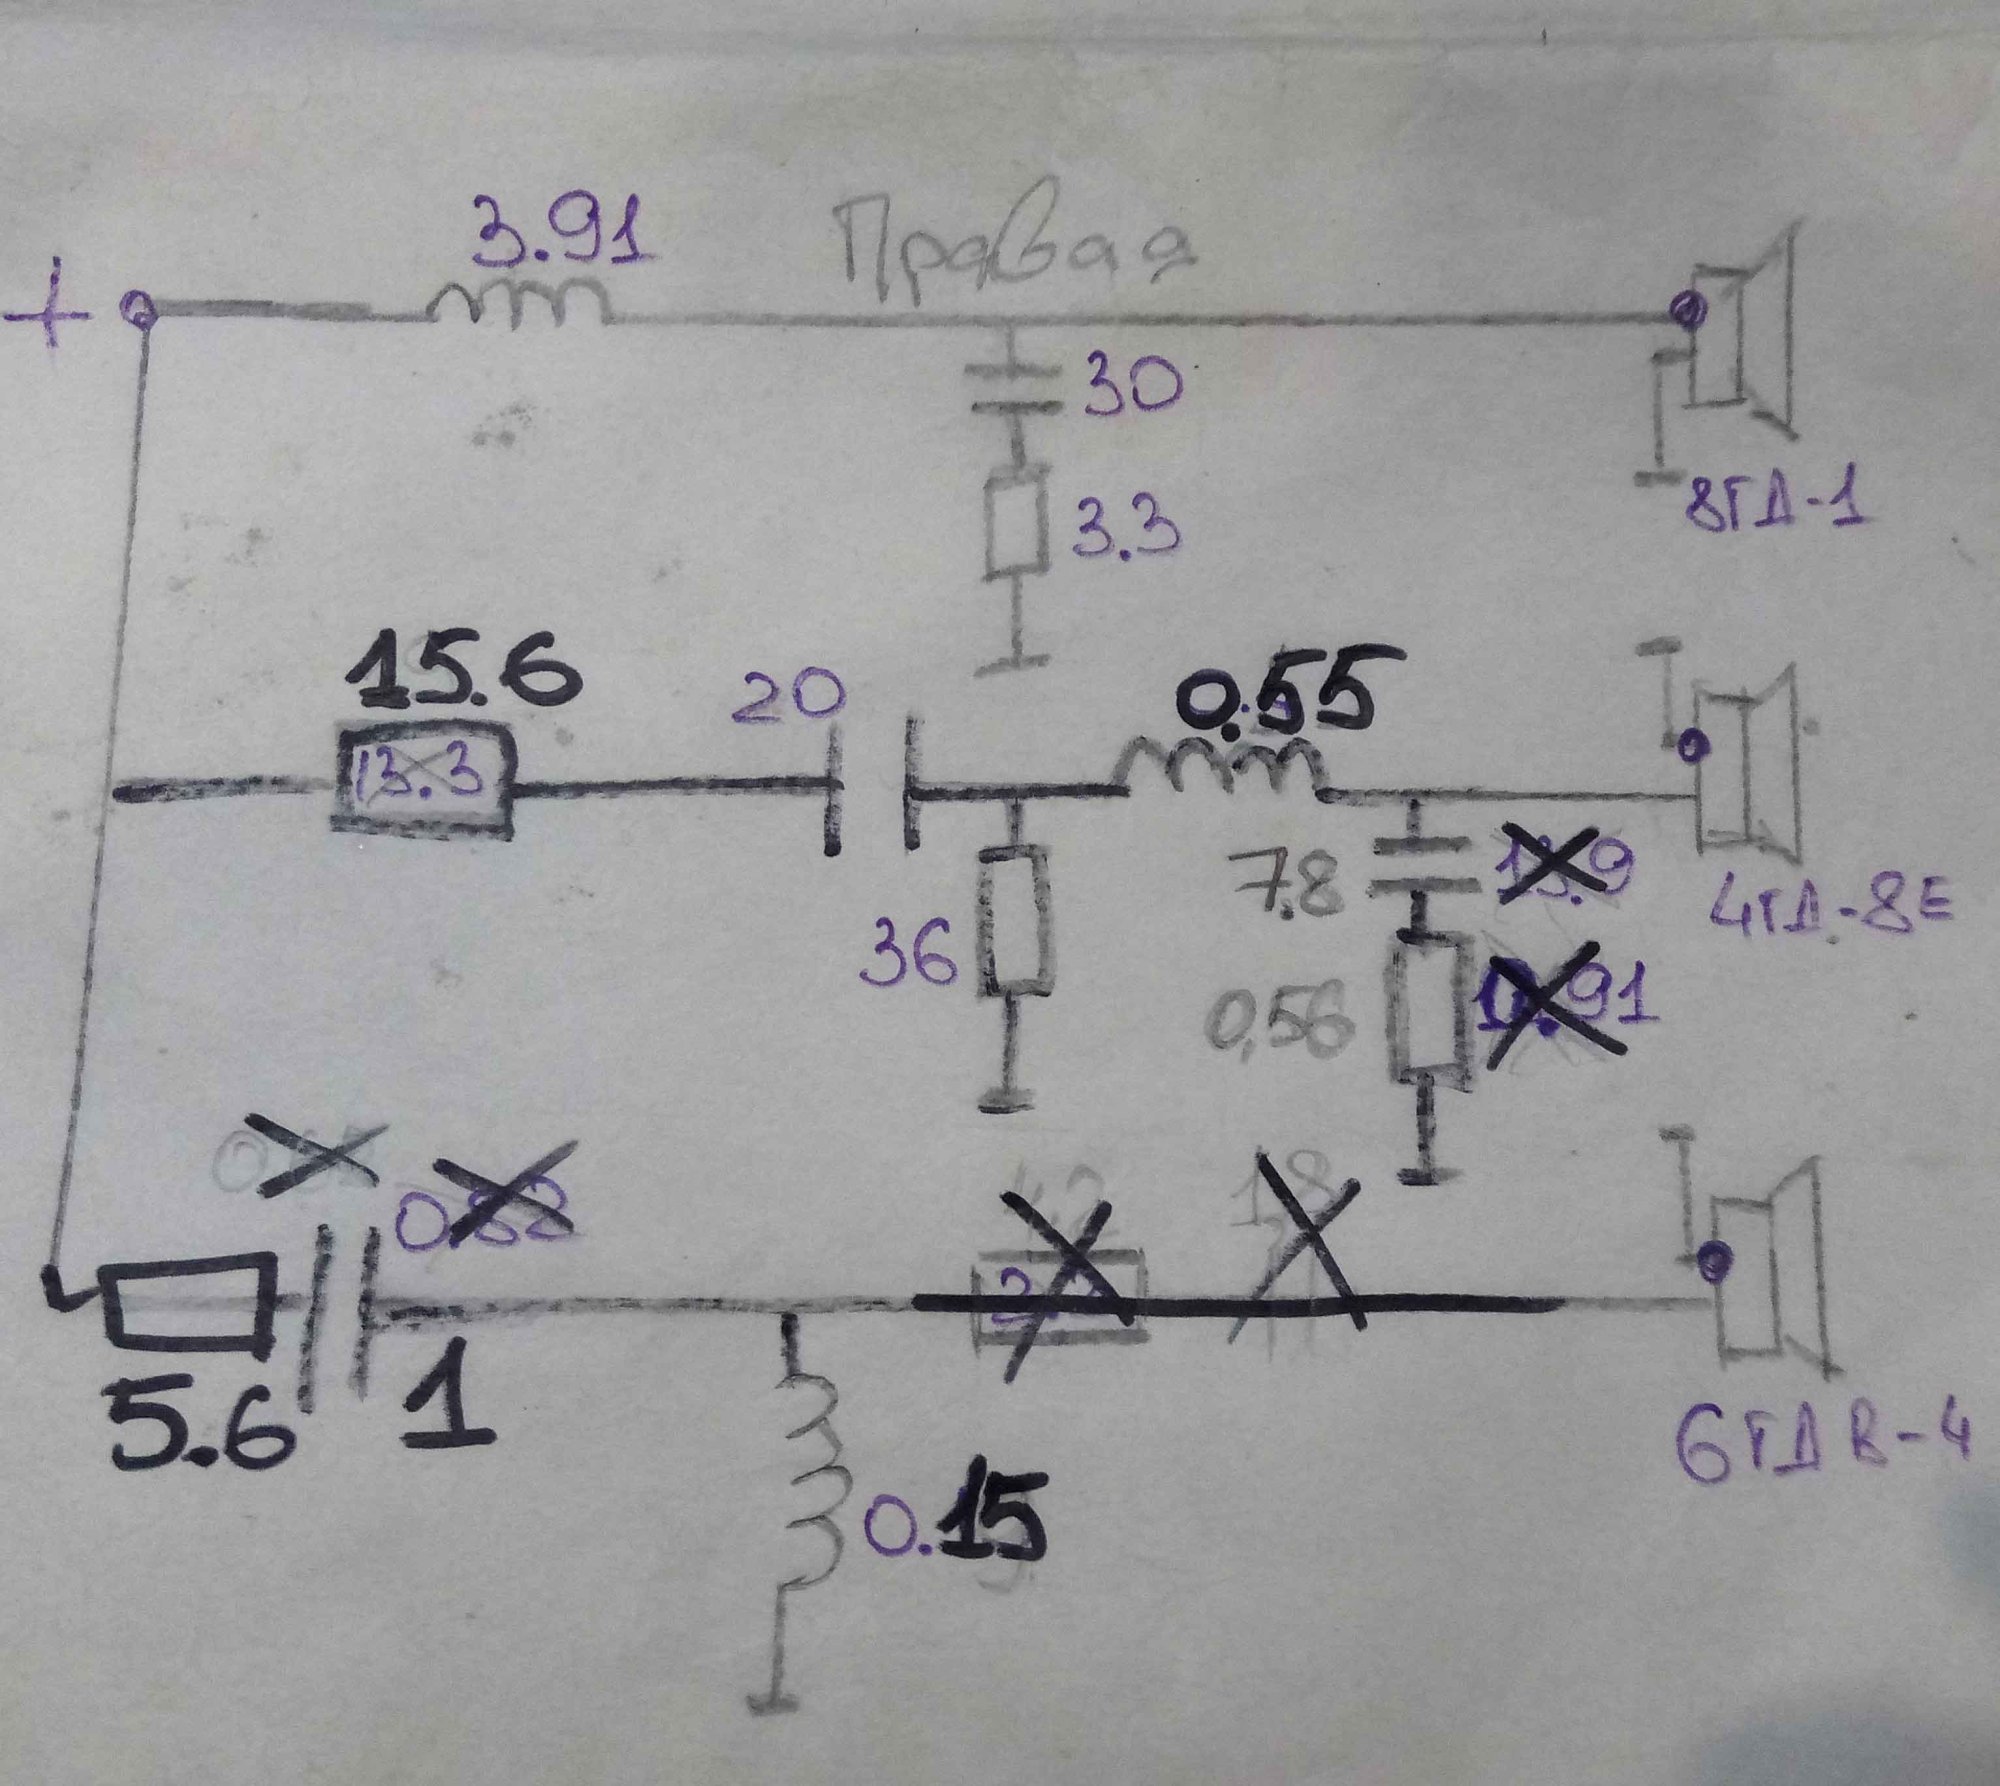 3.91
Правая
+
30
8ГД-1
3.3
15.6
20
0.55
13.3
7.8
13.9
4ГД-8Е
36
0,56
0.91
0.82
5.6
1
6ГДВ-4
0.15